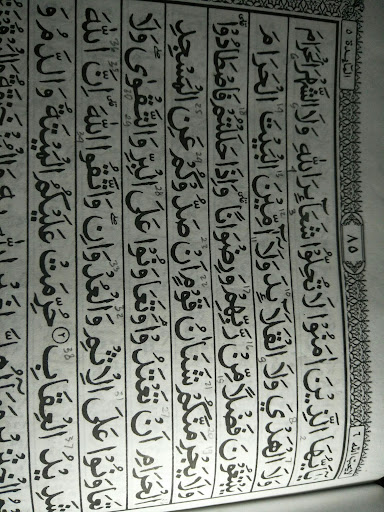 المآئدة ٥
١٥
يٰٓاَيُّهَا الَّذِيْنَ اٰمَنُوْا لَا تُحِلُّوْا شَعَآئِرَ اللّٰهِ وَلَا الشَّهْرَ الْحَرَامَ
وَلَا الْهَدْيَ وَلَا الْقَلَآئِدَ وَلَآ آٰمِّيْنَ الْبَيْتَ الْحَرَامَ
يَبْتَغُوْنَ فَضْلًا مِّنْ رَّبِّهِمْ وَرِضْوَانًا ؕ وَاِذَا حَلَلْتُمْ فَاصْطَادُوْا ؕ
وَلَا يَجْرِمَنَّكُمْ شَنَاٰنُ قَوْمٍ اَنْ صَدُّوْكُمْ عَنِ الْمَسْجِدِ
الْحَرَامِ اَنْ تَعْتَدُوْا ۘ وَتَعَاوَنُوْا عَلَى الْبِرِّ وَالتَّقْوٰى ۪ وَلَا
تَعَاوَنُوْا عَلَى الْاِثْمِ وَالْعُدْوَانِ ۪ وَاتَّقُوا اللّٰهَ ؕ اِنَّ اللّٰهَ
شَدِيْدُ الْعِقَابِ ﴿٢﴾ حُرِّمَتْ عَلَيْكُمُ الْمَيْتَةُ وَالدَّمُ وَ